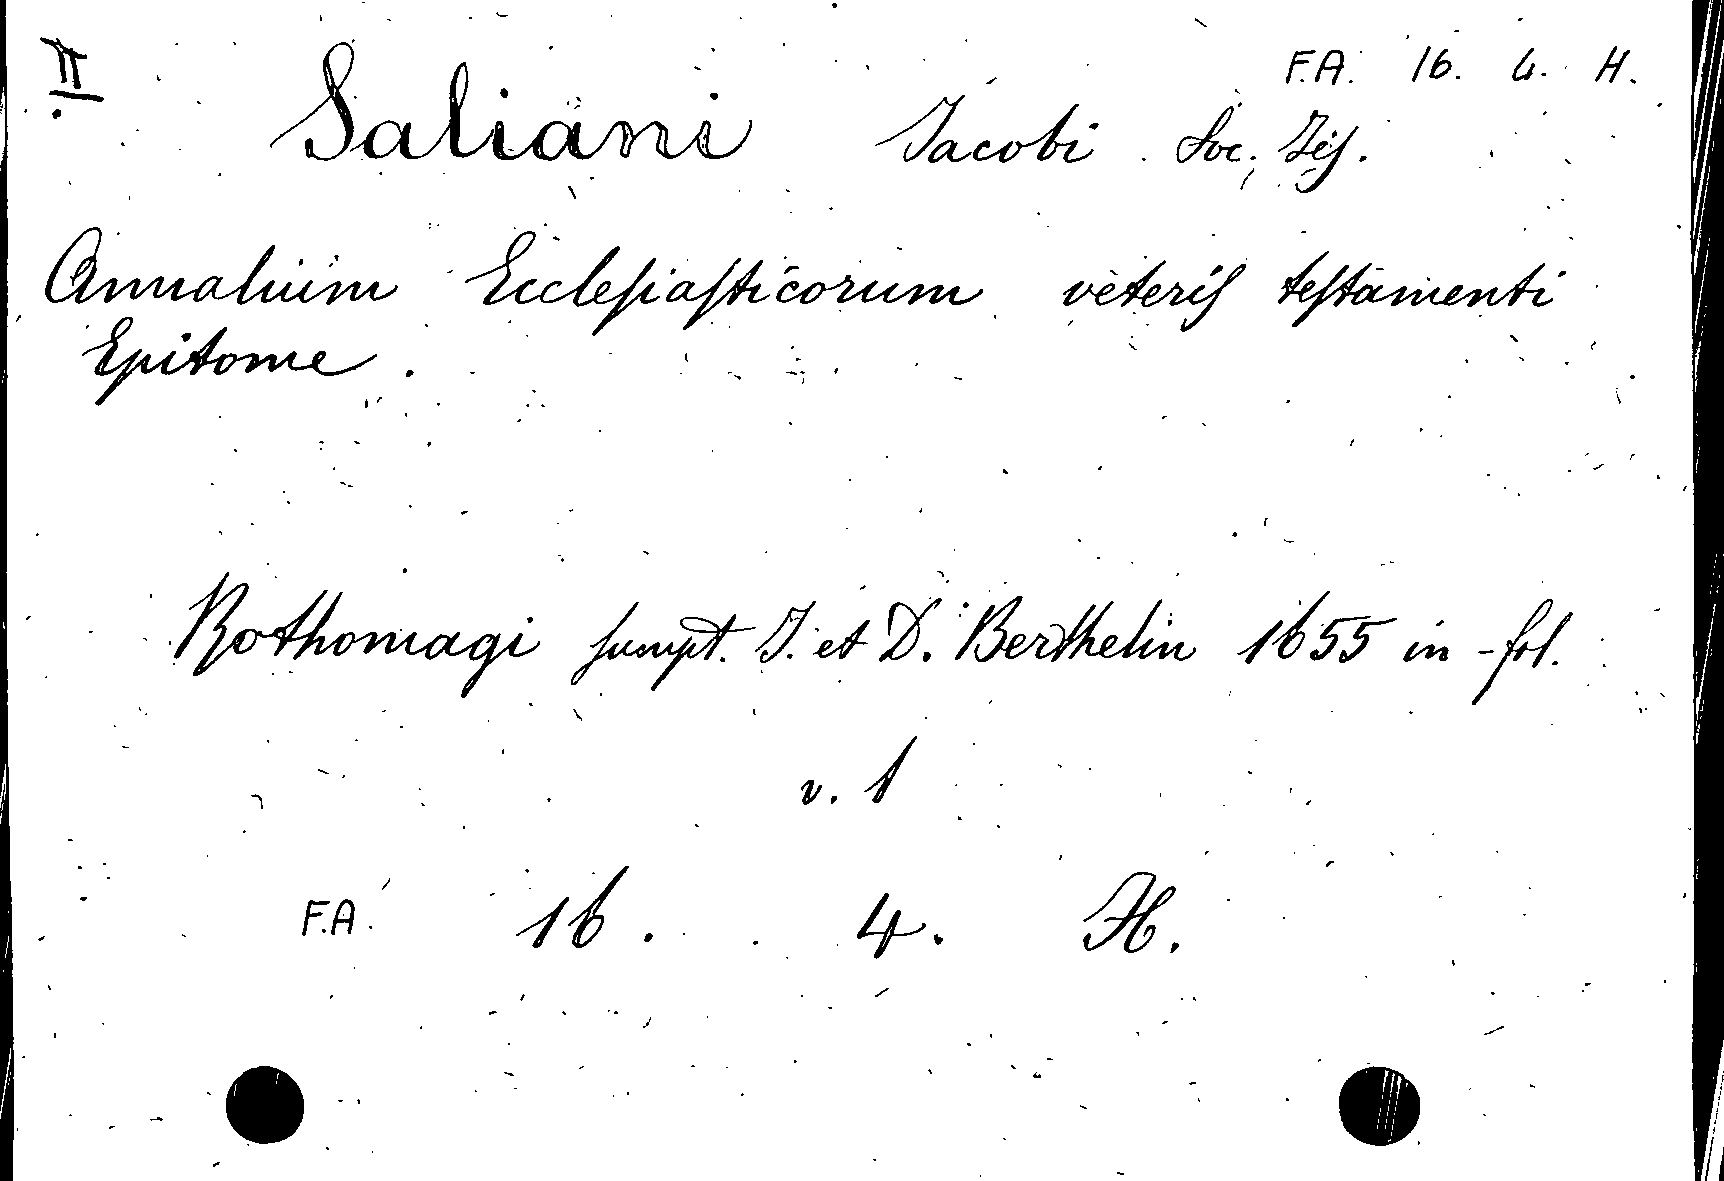 II
F.A. 16. 4. H.
Saliani Jacobi Soc. Jes.
Annalium Ecclesiasticorum veteris testamenti
Epitome.
Rothomagi sumpt. J. et D. Berthelin 1655 in-fol.
v. 1
F.A. 16. 4. H.